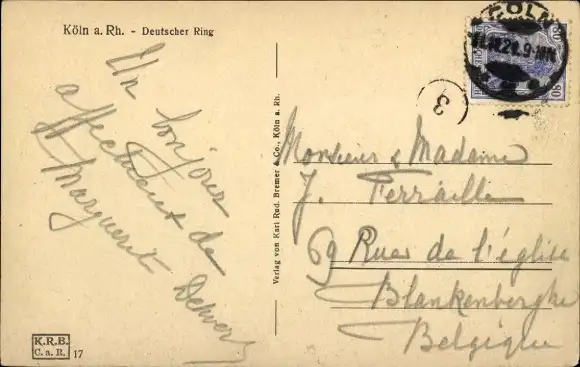 Köln a. Rh. - Deutscher Ring
Un bonjour
affectueux de
Marguerite
Verlag von Karl Rud. Bremer & Co., Köln a. Rh.
K.R.B.
C.a.R. 17
CÖLN
80
3
Monsieur & Madame
J. Ferraille
69 Rue de l'église
Blankenberghe
Belgique